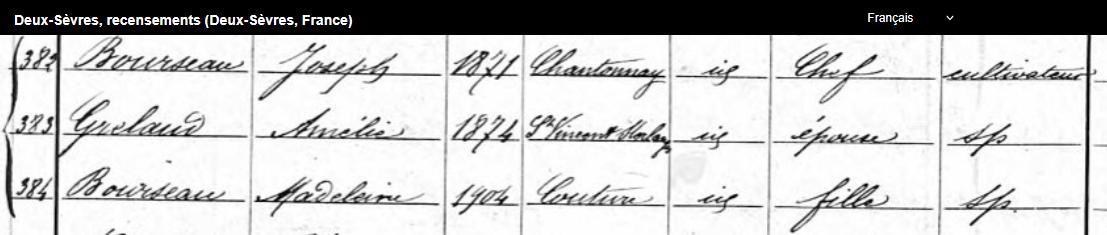 Deux-Sèvres, recensements (Deux-Sèvres, France) Français
382 Bourseau Joseph 1871 Chantonnay id Chef cultivateur
383 Grelaud Amélie 1874 St Vincent id épouse sp
384 Bourseau Madeleine 1904 Couture id fille sp.